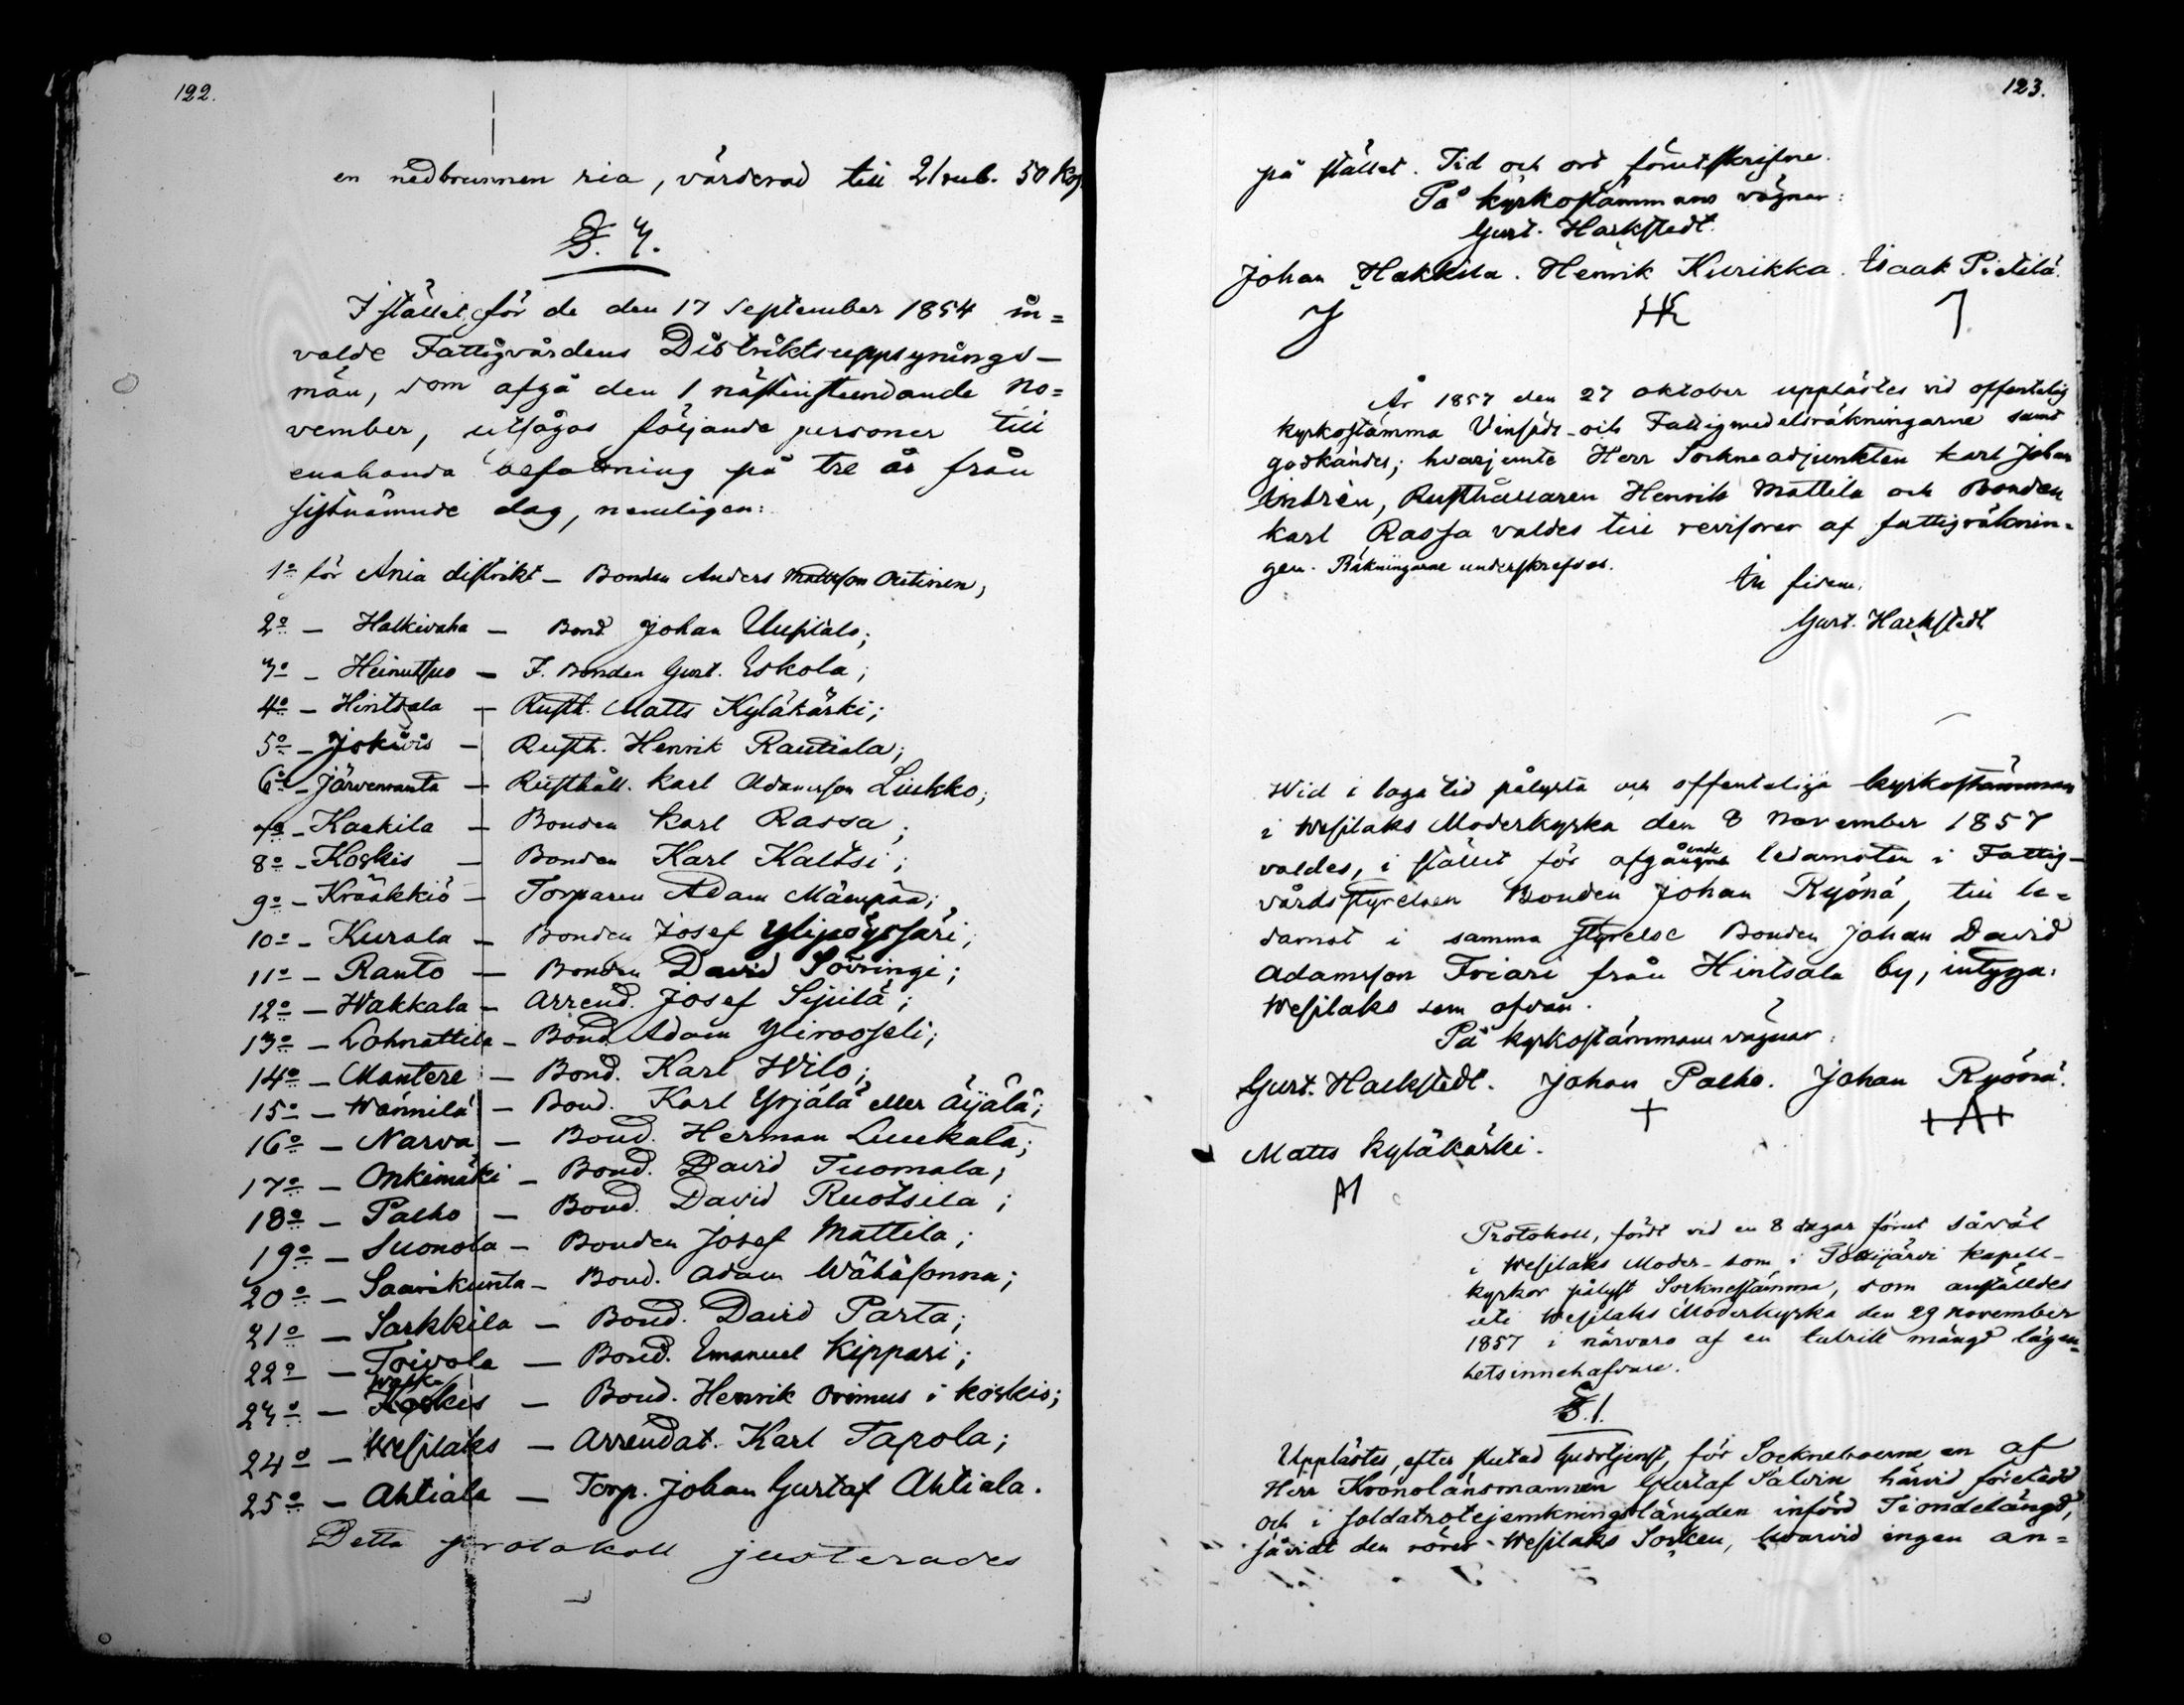 122.
en nedbrunnen ria, värderad till 21 rub. 50 Kop
§. 7.
I stället för de den 17 September 1854 in=
valde Fattigvårdens Distriktsuppsynings-
män, som afgå den 1 nästinstundande No=
vember, utsågos följande personer till
enahanda befattning på tre år från
sistnämnde dag, nemligen:
1º för Ania distrikt – Bonden Anders Mattsson Outinen,
2º – Halkivaha – Bond. Johan Uusitalo;
3º – Heinuttsuo – F. Bonden Gust. Eskola;
4º – Hintsala – Rusth. Matts Kyläkärki;
5º – Jokiois – Rusth. Henrik Rautiala;
6º – Järvenranta – Rusthåll. Karl Adamsson Liukko;
7º – Kaekila – Bonden Karl Rassa;
8º – Koskis – Bonden Karl Kaltsi;
9º – Krääkkiö – Torparen Adam Mäenpää;
10º – Kurala – Bonden Josef Ylipöyssäri;
11º – Ranto – Bonden David Soiringi;
12º – Wakkala – Arrend. Josef Sipilä;
13º – Lohnattila – Bond. Adam Yliroosseli;
14º – Mantere – Bond. Karl Wilo;
15º – Wännilä – Bond. Karl Yrjälä eller Äijälä;
16º – Narva – Bond. Herman Luukala;
17º – Onkimäki – Bond. David Tuomala;
18º – Palho – Bond. David Ruotsila;
19º – Suonola – Bonden Josef Mattila;
20º – Saarikunta – Bond. Adam Wähäsonna;
21º – Sarkkila – Bond. David Parta;
22º – Toivola – Bond. Emanuel Kippari;
23º – Koskis – Bond. Henrik Orimus i Koskis;
24º – Wesilaks – Arrendat. Karl Tapola;
25º – Ahtiala – Torp. Johan Gustaf Ahtiala.
Detta protokoll justerades
123.
på stället. Tid och ort förutskrifne.
På kyrkostämmans vägnar:
Gust. Hackstedt.
Johan Hakkila. Henrik Kurikka. Isaak Pietilä.
J HK J
År 1857 den 27 oktober upplästes vid offentelig
kyrkostämma Vinsädes- och Fattigmedelsräkningarne samt
godkändes; hvarjemte Herr Sockneadjunkten Karl Johan
Indrén, Rusthållaren Henrik Mattila och Bonden
Karl Rassa valdes till revisorer af fattigräknin-
gen. Räkningarne underskrefvos.
In fidem.
Gust. Hackstedt
Wid i laga tid pålysta och offenteliga kyrkostämman
i Wesilaks Moderkyrka den 8 November 1857
valdes, i stället för afgående ledamoten i Fattig-
vårdsstyrelsen Bonden Johan Ryönä, till le=
damot i samma styrelse Bonden Johan David
Adamsson Friari från Hintsala by, intyga.
Wesilaks som ofvan.
På kyrkostämmans vägnar:
Gust. Hackstedt. Johan Palho. Johan Ryönä.
Matts Kyläkärki.
Protokoll, fördt vid en 8 dagar förut såväl
i Wesilaks Moder- som i Tottijärvi kapell-
kyrkor pålyst Socknestämma, som anställdes
uti Wesilaks Moderkyrka den 29 November
1857 i närvaro af en talrik mängd lägen=
hetsinnehafvare.
§. 1.
Upplästes, efter slutad Gudstjenst, för Sockneboerne en af
Herr Kronolänsmannen Gustaf Salvin härvid föreredd
och i soldatrotejemkningslängden införd Tiondelängd,
såvidt den rörer Wesilaks Socken, hvarvid ingen an=